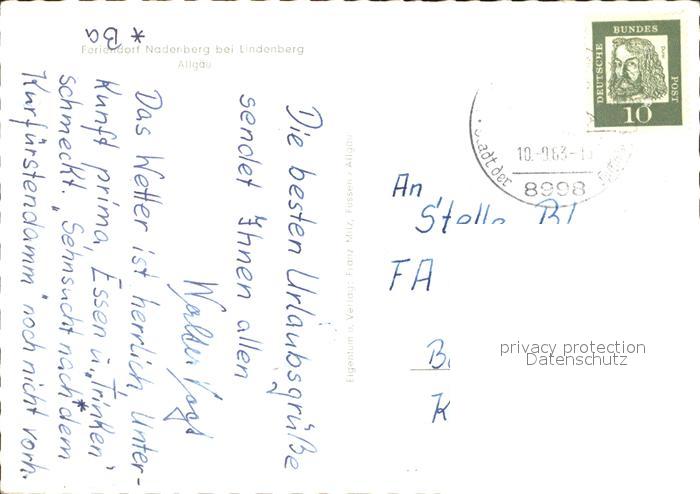 Feriendorf Nadenberg bei Lindenberg
Allgäu
Die besten Urlaubsgrüße
sendet Ihnen allen
Walter Vogt
Das Wetter ist herrlich, Unter-
kunft prima, Essen u. „Trinken"
schmeckt. „Sehnsucht nach dem
Kurfürstendamm" noch nicht vorh.
* Ba
Eigentum u. Verlag: Franz Milz, Füssen / Allgäu
DEUTSCHE
BUNDES
POST
10
Stadt der
10.-9.63-1
8998
An
FA
B
K
privacy protection
Datenschutz